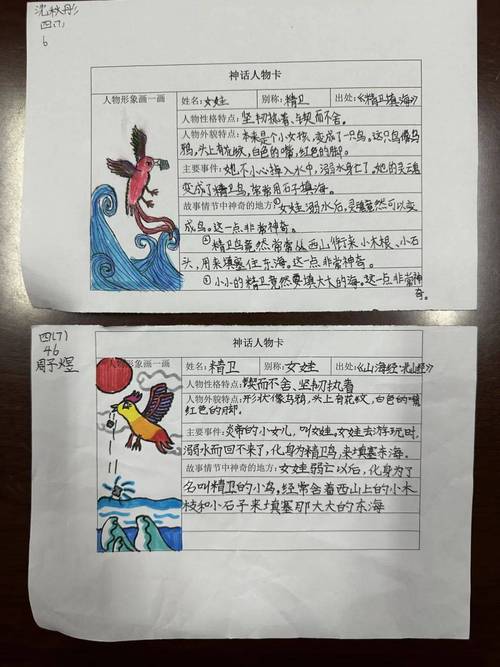 沈秋彤
四(7)
6
神话人物卡
人物形象画一画
姓名:女娃 别称:精卫 出处:《精卫填海》
人物性格特点:坚韧执着、锲而不舍。
人物外貌特点:本来是个小女孩,变成了一只鸟。这只鸟像乌
鸦,头上有花纹,白色的嘴,红色的脚。
主要事件:她不小心掉入水中,溺水身亡了。她的灵魂
变成了精卫鸟,常常用石子填海。
故事情节中神奇的地方:①女娃溺水后,灵魂竟然可以变
成鸟。这一点非常神奇。
②精卫鸟竟然常常从西山衔来小木根、小石
头,用来填塞住东海。这一点非常神奇。
③小小的精卫竟然要填大大的海。这一点非常神
奇。
四(7)
46
周子煜
神话人物卡
人物形象画一画
姓名:精卫 别称:女娃 出处:《山海经·北山经》
人物性格特点:锲而不舍、坚韧执着
人物外貌特点:形状像乌鸦,头上有花纹,白色的嘴
红色的脚。
主要事件:炎帝的小女儿,叫女娃。女娃去游玩时,
溺水而回不来了,化身为精卫鸟,来填塞东海。
故事情节中神奇的地方:女娃溺亡以后,化身为了
名叫精卫的小鸟,经常含着西山上的小木
枝和小石子来填塞那大大的东海